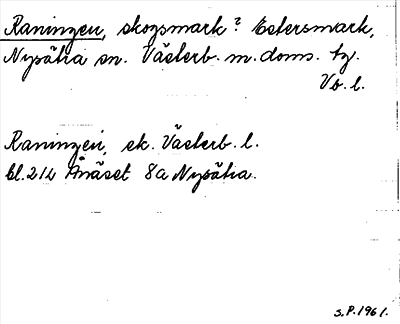 Raningen, skogsmark? Estersmark,
Nysätra sn. Västerb. m. doms. tg.
Vb. l.
Raningen, ek. Västerb. l.
bl. 214 Ånäset 8a Nysätra.
S.P. 1961.